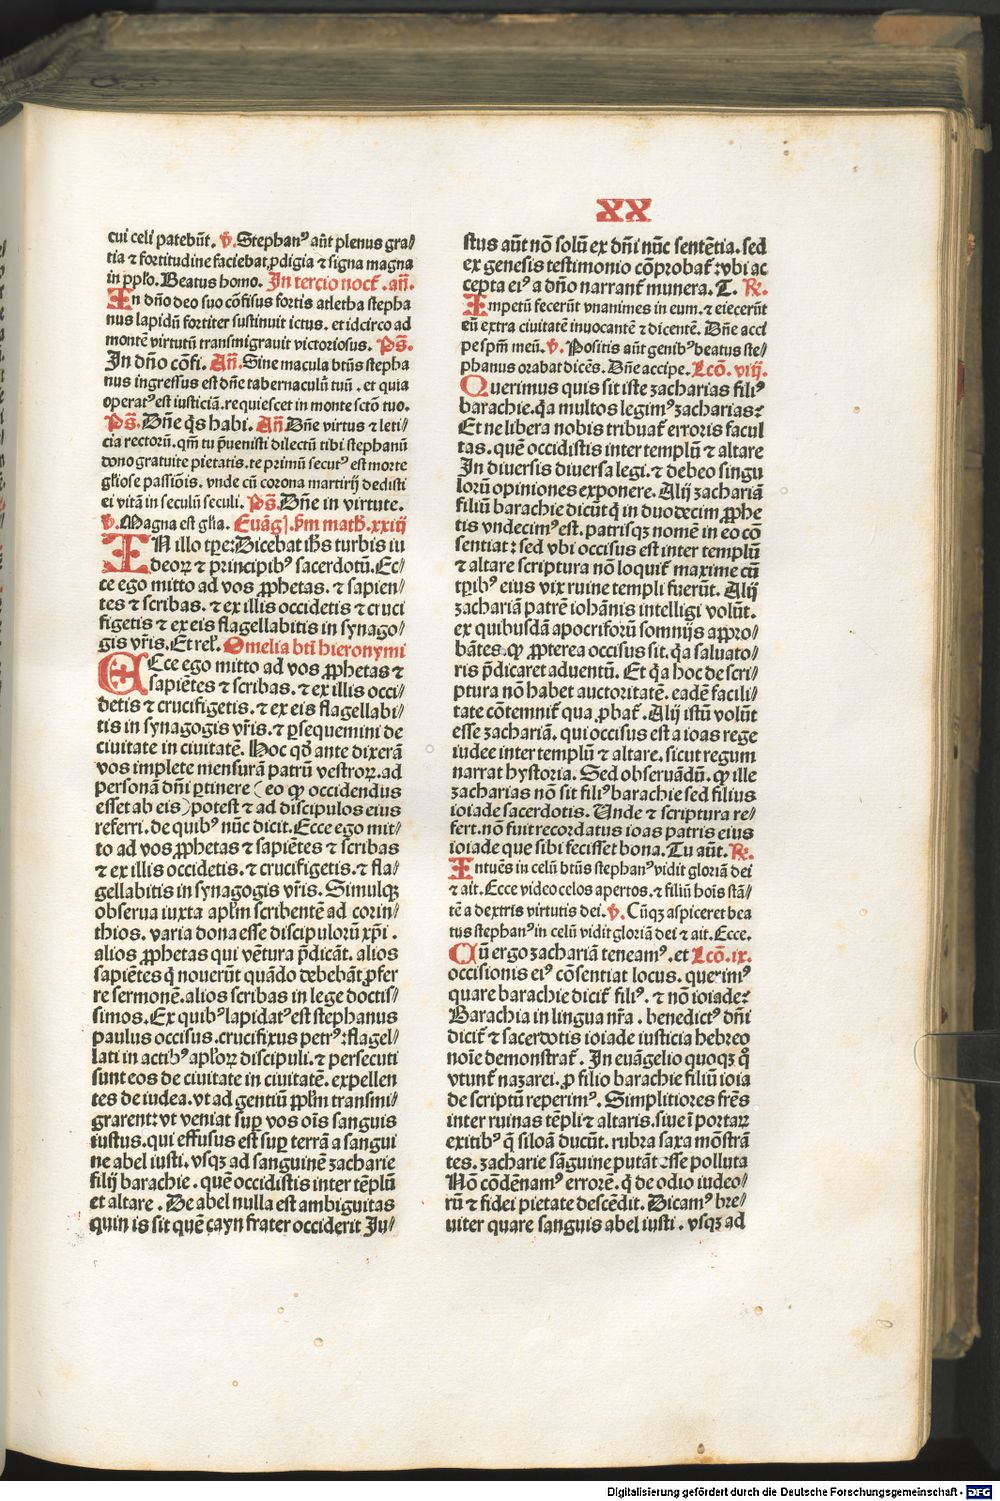 XX
cui celi patebūt. ꝟ. Stephanꝰ aūt plenus gra⸗
tia ⁊ fortitudine faciebat ꝓdigia ⁊ signa magna
in pplo. Beatus homo. In tercio noct̄. añ.
In dño deo suo cōfisus fortis atletha stepha
nus lapidū fortiter sustinuit ictus. et idcirco ad
montē virtutū transmigrauit victoriosus. Ps̄.
In dño cōfi. Añ. Sine macula btūs stepha
nus ingressus est dñe tabernaculū tuū. et quia
operatꝰ est iusticiā. requiescet in monte sctō tuo.
Ps̄. Dñe q̄s habi. Añ. Dñe virtus ⁊ leti⸗
cia rectorū. qm̄ tu p̄uenisti dilectū tibi stephanū
dono gratuite pietatis. te primū secutꝰ est morte
gl̄iose passiōis. vnde cū corona martirij dedisti
ei vitā in seculū seculi. Ps̄. Dñe in virtute.
ꝟ. Magna est gl̄ia. Euāgl̄. ẜm math̄. xxiij
IN illo tp̄e: Dicebat ih̄s turbis iu
deoꝝ ⁊ principibꝰ sacerdotū. Ec⸗
ce ego mitto ad vos ꝓphetas. ⁊ sapien⸗
tes ⁊ scribas. ⁊ ex illis occidetis ⁊ cruci
figetis ⁊ ex eis flagellabitis in synago⸗
gis vr̄is. Et rel̄. Omelia bti hieronymi
ECce ego mitto ad vos ꝓphetas ⁊
sapiētes ⁊ scribas. ⁊ ex illis occi⸗
detis ⁊ crucifigetis. ⁊ ex eis flagellabi⸗
tis in synagogis vr̄is. ⁊ ꝑsequemini de
ciuitate in ciuitatē. Hoc qď ante dixerā
vos implete mensurā patrū vestroꝝ. ad
personā dñi ꝑtinere (eo ꝙ occidendus
esset ab eis) potest ⁊ ad discipulos eius
referri. de quibꝰ nūc dicit. Ecce ego mit⸗
to ad vos ꝓphetas ⁊ sapiētes ⁊ scribas
⁊ ex illis occidetis. ⁊ crucifigetis. ⁊ fla⸗
gellabitis in synagogis vr̄is. Simulqꝫ
obserua iuxta apl̄m scribentē ad corin⸗
thios. varia dona esse discipulorū xp̄i.
alios ꝓphetas qui vētura p̄dicāt. alios
sapiētes q̇ nouerūt quādo debebāt ꝓfer
re sermonē. alios scribas in lege doctis⸗
simos. Ex quibꝰ lapidatꝰ est stephanus
paulus occisus. crucifixus petrꝰ: flagel⸗
lati in actibꝰ apl̄oꝝ discipuli. ⁊ persecuti
sunt eos de ciuitate in ciuitatē. expellen
tes de iudea. vt ad gentiū ppl̄m transmi⸗
grarent: vt veniat suꝑ vos oīs sanguis
iustus. qui effusus est suꝑ terrā a sangui
ne abel iusti. vsqꝫ ad sanguinē zacharie
filij barachie. quē occidistis inter tēplū
et altare. De abel nulla est ambiguitas
quin is sit quē cayn frater occiderit Ju⸗
stus aūt nō solū ex dñi nūc sentētia. sed
ex genesis testimonio cōprobat̄: vbi ac
cepta eiꝰ a dño narrant̄ munera. T. R̄.
Impetū fecerūt vnanimes in eum. ⁊ eiecerūt
eū extra ciuitatē inuocantē ⁊ dicentē. Dñe acci
pe spm̄ meū. ꝟ. Positis aūt genibꝰ beatus ste⸗
phanus orabat dicēs. Dñe accipe. Lcō. viij.
Querimus quis sit iste zacharias filiꝰ
barachie. q̇a multos legimꝰ zacharias:
Et ne libera nobis tribuat̄ erroris facul
tas. quē occidistis inter templū ⁊ altare
In diuersis diuersa legi. ⁊ debeo singu
lorū opiniones exponere. Alij zachariā
filiū barachie dicūt q̇ in duodecim ꝓphe
tis vndecimꝰ est. patrisqꝫ nomē in eo cō
sentiat: sed vbi occisus est inter templū
⁊ altare scriptura nō loquit̄ maxime cū
tꝑibꝰ eius vix ruine templi fuerūt. Alij
zachariā patrē iohānis intelligi volūt.
ex quibusdā apocriforū somnijs appro⸗
bātes. ꝙ ꝓpterea occisus sit. q̇a saluato⸗
ris p̄dicaret aduentū. Et q̇a hoc de scri⸗
ptura nō habet auctoritatē. eadē facili⸗
tate cōtemnit̄ qua ꝓbat̄. Alij istū volūt
esse zachariā. qui occisus est a ioas rege
iudee inter templū ⁊ altare. sicut regum
narrat hystoria. Sed obseruādū. ꝙ ille
zacharias nō sit filiꝰ barachie sed filius
ioiade sacerdotis. Unde ⁊ scriptura re⸗
fert. nō fuit recordatus ioas patris eius
ioiade que sibi fecisset bona. Tu aūt. R̄.
Intuēs in celū btūs stephanꝰ vidit gloriā dei
⁊ ait. Ecce video celos apertos. ⁊ filiū hoīs stā⸗
tē a dextris virtutis dei. ꝟ. Cūqꝫ aspiceret bea
tus stephanꝰ in celū vidit gloriā dei ⁊ ait. Ecce.
Cū ergo zachariā teneamꝰ. et Lcō. ix.
occisionis eiꝰ cōsentiat locus. querimꝰ
quare barachie dicit̄ filiꝰ. ⁊ nō ioiade:
Barachia in lingua nr̄a. benedictꝰ dñi
dicit̄ ⁊ sacerdotis ioiade iusticia hebreo
noīe demonstrat̄. In euāgelio quoqꝫ q̊
vtunt̄ nazarei. ꝓ filio barachie filiū ioia
de scriptū reperimꝰ. Simplitiores frēs
inter ruinas tēpli ⁊ altaris. siue ī portaꝝ
exitibꝰ q̄ siloā ducūt. rubra saxa mōstrā
tes. zacharie sāguine putāt esse polluta
Nō cōdēnamꝰ errorē. q̇ de odio iudeo⸗
rū ⁊ fidei pietate descēdit. Dicamꝰ bre⸗
uiter quare sanguis abel iusti. vsqꝫ ad
Digitalisierung gefördert durch die Deutsche Forschungsgemeinschaft - DFG